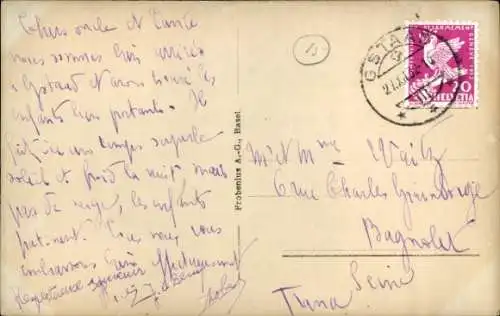 Chers oncle et Tante
nous sommes bien arrivés
à Gstaad et avons trouvé les
enfants bien portants. Il
fait ici un temps superbe
soleil et froid la nuit mais
pas de neige, les enfants
Tous nous vous
embrassons bien affectueusement
Frobenius A.-G., Basel
GSTAAD
HELVETIA
20
M r et M me Waitz
6 rue Charles
Bagnolet
Seine